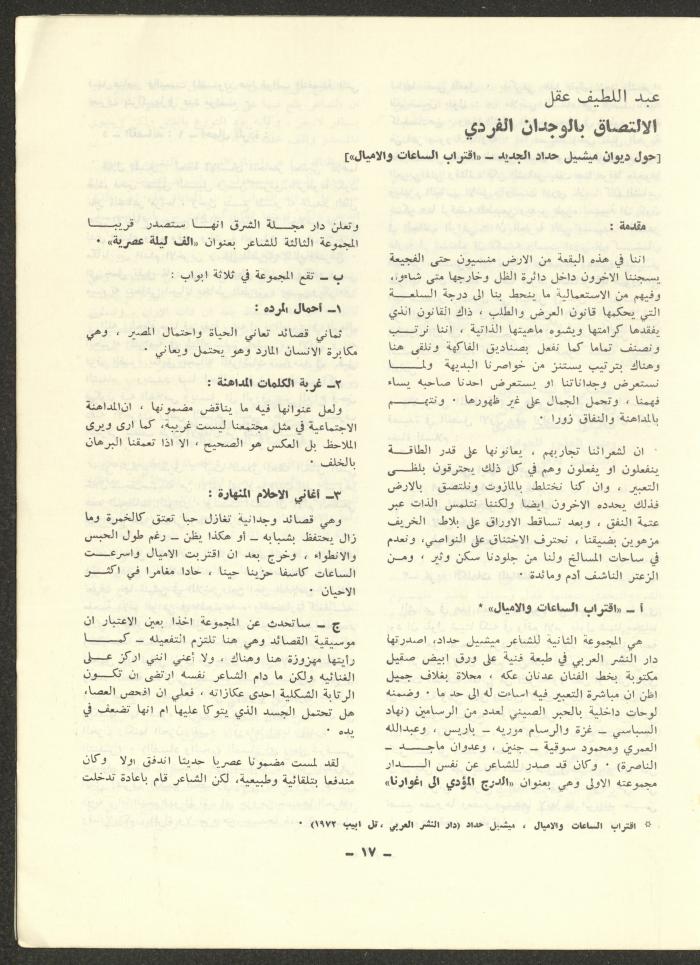 عبد اللطيف عقل
الالتصاق بالوجدان الفردي
[حول ديوان ميشيل حداد الجديد ــ «اقتراب الساعات والاميال»]
مقدمة :
اننا في هذه البقعة من الارض منسيون حتى الفجيعة
يسجننا الاخرون داخل دائرة الظل وخارجها متى شاءوا،
وفيهم من الاستعمالية ما ينحط بنا الى درجة السلعــة
التي يحكمها قانون العرض والطلب ، ذاك القانون الذي
يفقدها كرامتها ويشوه ماهيتها الذاتية ، اننا نرتــب
ونصنف تماما كما نفعل بصناديق الفاكهة ونلقى هنا
وهناك بترتيب يستنز من خواصرنا البديهة ولمــا
نستعرض وجداناتنا او يستعرض احدنا صاحبه يساء
فهمنا ، وتحمل الجمال على غير ظهورها · ونتهــم
بالمداهنة والنفاق زورا ·
ان لشعرائنا تجاربهم ، يعانونها على قدر الطاقــة
ينفعلون او يفعلون وهم في كل ذلك يحترقون بلظــى
التعبير ، وان كنا نختلط بالمازوت ونلتصق بالارض
فذلك يحدده الاخرون ايضا ولكننا نتلمس الذات عبر
عتمة النفق ، وبعد تساقط الاوراق على بلاط الخريف
مزهوين بضيقنا ، نحترف الاختناق على النواصي، ونعدم
في ساحات المسالخ ولنا من جلودنا سكن وثير ، ومــن
الزعتر الناشف أدم ومائدة ·
أ ــ «اقتراب الساعات والاميال» *
هي المجموعة الثانية للشاعر ميشيل حداد، اصدرتها
دار النشر العربي في طبعة فنية على ورق ابيض صقيل
مكتوبة بخط الفنان عدنان عكه ، محلاة بغلاف جميل
اظن ان مباشرة التعبير فيه اساءت له الى حد ما · وضمنه
لوحات داخلية بالحبر الصيني لعدد من الرسامين (نهاد
السباسي ــ غزة والرسام موريه ــ باريس ، وعبدالله
العمري ومحمود سوقية ــ جنين ، وعدوان ماجــد ــ
الناصرة) · وكان قد صدر للشاعر عن نفس الــدار
مجموعته الاولى وهي بعنوان «الدرج المؤدي الى اغوارنا»
وتعلن دار مجــلة الشرق انهــا ستصدر قريبــا
المجموعة الثالثة للشاعر بعنوان «الف ليلة عصرية» ·
ب ــ تقع المجموعة في ثلاثة ابواب :
١ــ أحمال المرده :
ثماني قصائد تعاني الحياة واحتمال المصير ، وهي
مكابرة الانسان المارد وهو يحتمل ويعاني ·
٢ــ غربة الكلمات المداهنة :
ولعل عنوانها فيه ما يناقض مضمونها ، ان المداهنة
الاجتماعية في مثل مجتمعنا ليست غريبة، كما ارى ويرى
الملاحظ بل العكس هو الصحيح ، الا اذا تعمقنا البرهان
بالخلف ·
٣ــ أغاني الاحلام المنهارة :
وهي قصائد وجدانية تغازل حبا تعتق كالخمرة وما
زال يحتفظ بشبابه ــ أو هكذا يظن ــ رغم طول الحبس
والانطواء ، وخرج بعد ان اقتربت الاميال واسرعــت
الساعات كاسفا حزينا حينا ، حادا مغامرا في اكثــر
الاحيان ·
ج ــ ساتحدث عن المجموعة اخذا بعين الاعتبار ان
موسيقية القصائد وهي هنا تلتزم التفعيله ــ كمــا
رأيتها مهزوزة هنا وهناك ، ولا أعني انني اركز علــى
الغنائيه ولكن ما دام الشاعر نفسه ارتضى ان تكــون
الرتابة الشكلية احدى عكازاته ، فعلي ان افحص العصا،
هل تحتمل الجسد الذي يتوكا عليها ام انها تضعف في
يده ·
لقد لمست مضمونا عصريا حديثا اندفق اولا وكان
مندفعا بتلقائية وطبيعية، لكن الشاعر قام باعادة تدخلت
* اقتراب الساعات والاميال ، ميشيل حداد (دار النشر العربي ، تل ابيب ١٩٧٢) ·
ــ ١٧ ــ